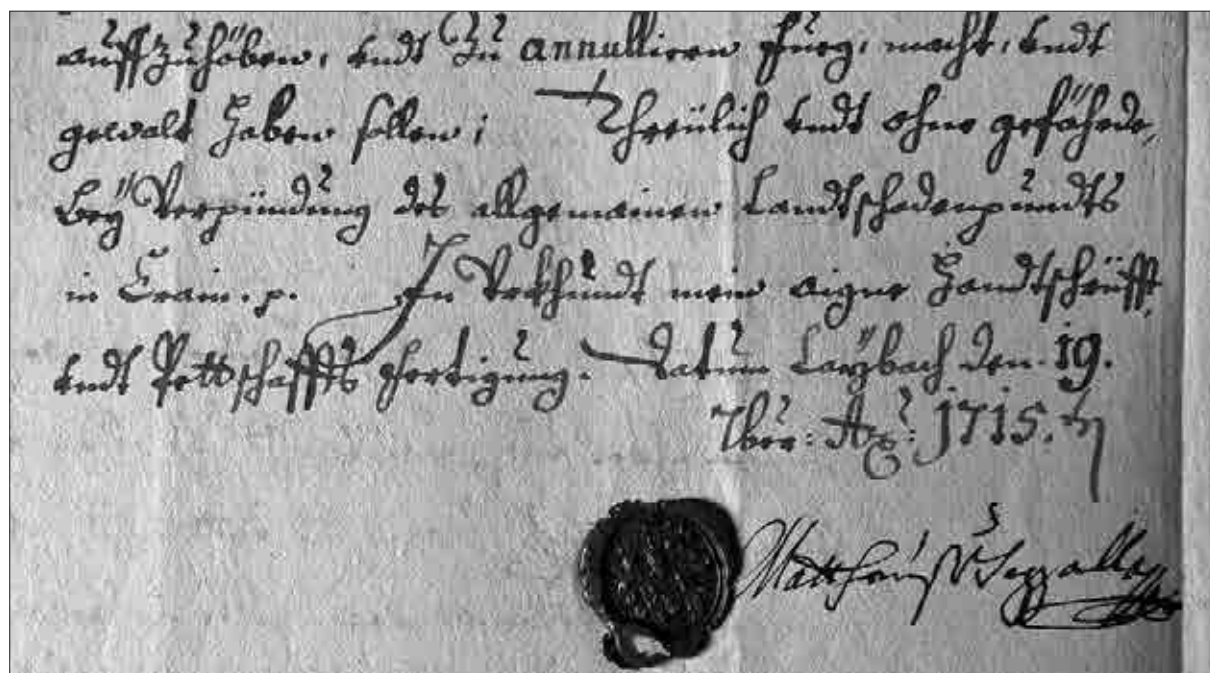 auffzuhöben, undt Zu annulliren fueg, macht, undt
gewalt haben sollen; Threülich undt ohne gefährde,
beÿ Verpündung des allgemainen Landtschadenpundts
in Crain. p. In Vrkhundt mein aigne Handtschrüfft,
undt Pettschaffts ferttigung. Datum Laÿbach den 19.
7ber: Aō: 1715.
Matthäus